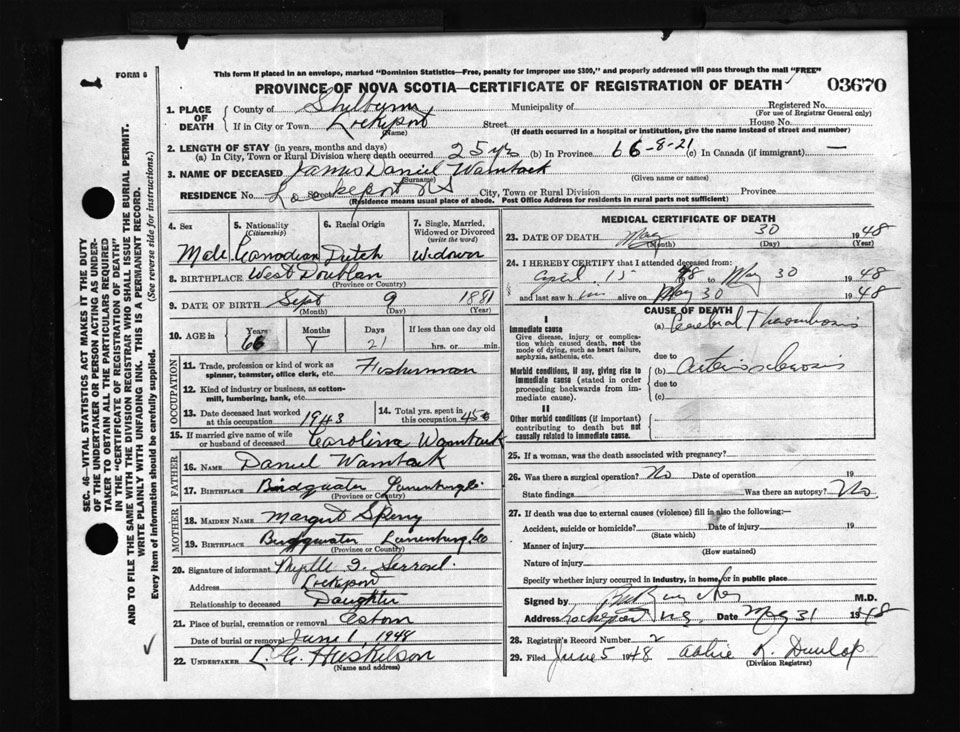 1
FORM 6
This form if placed in an envelope, marked "Dominion Statistics—Free, penalty for improper use $300," and properly addressed will pass through the mail "FREE"
PROVINCE OF NOVA SCOTIA—CERTIFICATE OF REGISTRATION OF DEATH
03670
1. PLACE OF DEATH
County of Shelburne Municipality of Registered No.
(For use of Registrar General only)
If in City or Town Lockeport Street House No.
(Name) (If death occurred in a hospital or institution, give the name instead of street and number)
2. LENGTH OF STAY (in years, months and days)
(a) In City, Town or Rural Division where death occurred 25 yrs (b) In Province 66-8-21 (c) In Canada (if immigrant) —
3. NAME OF DECEASED James Daniel Wamback
(Surname) (Given name or names)
RESIDENCE No. Street Lockeport NS City, Town or Rural Division Province
(Residence means usual place of abode. Post Office Address for residents in rural parts not sufficient)
4. Sex 5. Nationality (Citizenship) 6. Racial Origin 7. Single, Married, Widowed or Divorced (write the word)
Male Canadian Dutch Widower
8. BIRTHPLACE West
(Province or Country)
9. DATE OF BIRTH Sept 9 1881
(Month) (Day) (Year)
10. AGE in Years Months Days If less than one day old
66 21 hrs. or min.
OCCUPATION
11. Trade, profession or kind of work as spinner, teamster, office clerk, etc. Fisherman
12. Kind of industry or business, as cotton-mill, lumbering, bank, etc.
13. Date deceased last worked at this occupation 1943
14. Total yrs. spent in this occupation 45
15. If married give name of wife or husband of deceased Carolina Wamback
FATHER
16. NAME Daniel Wamback
17. BIRTHPLACE Bridgwater Lunenburg Co.
(Province or Country)
MOTHER
18. MAIDEN NAME Margret Sperry
19. BIRTHPLACE Bridgwater Lunenburg Co
(Province or Country)
20. Signature of informant
Address Lockeport
Relationship to deceased Daughter
21. Place of burial, cremation or removal
Date of burial or removal June 1, 1948
22. UNDERTAKER L. E. Huskilson
(Name and address)
MEDICAL CERTIFICATE OF DEATH
23. DATE OF DEATH May 30 1948
(Month) (Day) (Year)
24. I HEREBY CERTIFY that I attended deceased from:
April 15 48 to May 30 1948
and last saw him alive on May 30 1948
CAUSE OF DEATH
I
Immediate cause
Give disease, injury or complication which caused death, not the mode of dying, such as heart failure, asphyxia, asthenia, etc.
(a) Cerebral Thrombosis
due to
Morbid conditions, if any, giving rise to immediate cause (stated in order proceeding backwards from immediate cause).
(b) Arteriosclerosis
due to
(c)
II
Other morbid conditions (if important) contributing to death but not causally related to immediate cause.
25. If a woman, was the death associated with pregnancy?
26. Was there a surgical operation? No Date of operation 19
State findings Was there an autopsy? No
27. If death was due to external causes (violence) fill in also the following:—
Accident, suicide or homicide? Date of injury 19
(State which)
Manner of injury
(How sustained)
Nature of injury
Specify whether injury occurred in industry, in home, or in public place
Signed by M.D.
Address Lockeport N.S. Date May 31 1948
28. Registrar's Record Number 2
29. Filed June 5 1948 Dunlop
(Division Registrar)
SEC. 46—VITAL STATISTICS ACT MAKES IT THE DUTY
OF THE UNDERTAKER OR PERSON ACTING AS UNDER-
TAKER TO OBTAIN ALL THE PARTICULARS REQUIRED
IN THE "CERTIFICATE OF REGISTRATION OF DEATH"
AND TO FILE THE SAME WITH THE DIVISION REGISTRAR WHO SHALL ISSUE THE BURIAL PERMIT.
WRITE PLAINLY WITH UNFADING INK. THIS IS A PERMANENT RECORD.
Every item of information should be carefully supplied. (See reverse side for instructions.)